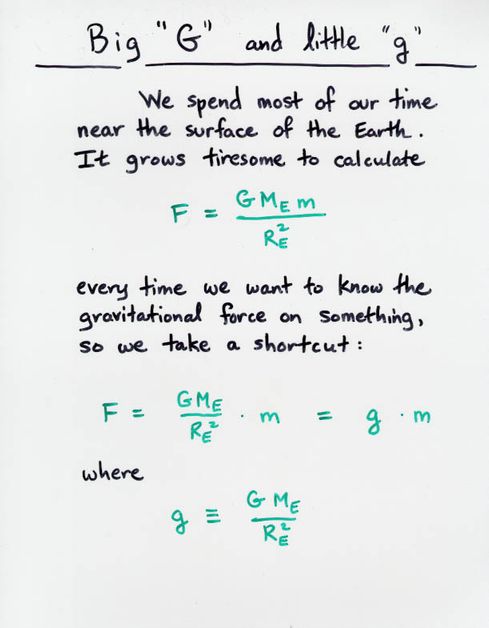 Big "G" and little "g"
We spend most of our time
near the surface of the Earth.
It grows tiresome to calculate
F = G M_E m / R_E^2
every time we want to know the
gravitational force on something,
so we take a shortcut:
F = G M_E / R_E^2 · m = g · m
where
g ≡ G M_E / R_E^2